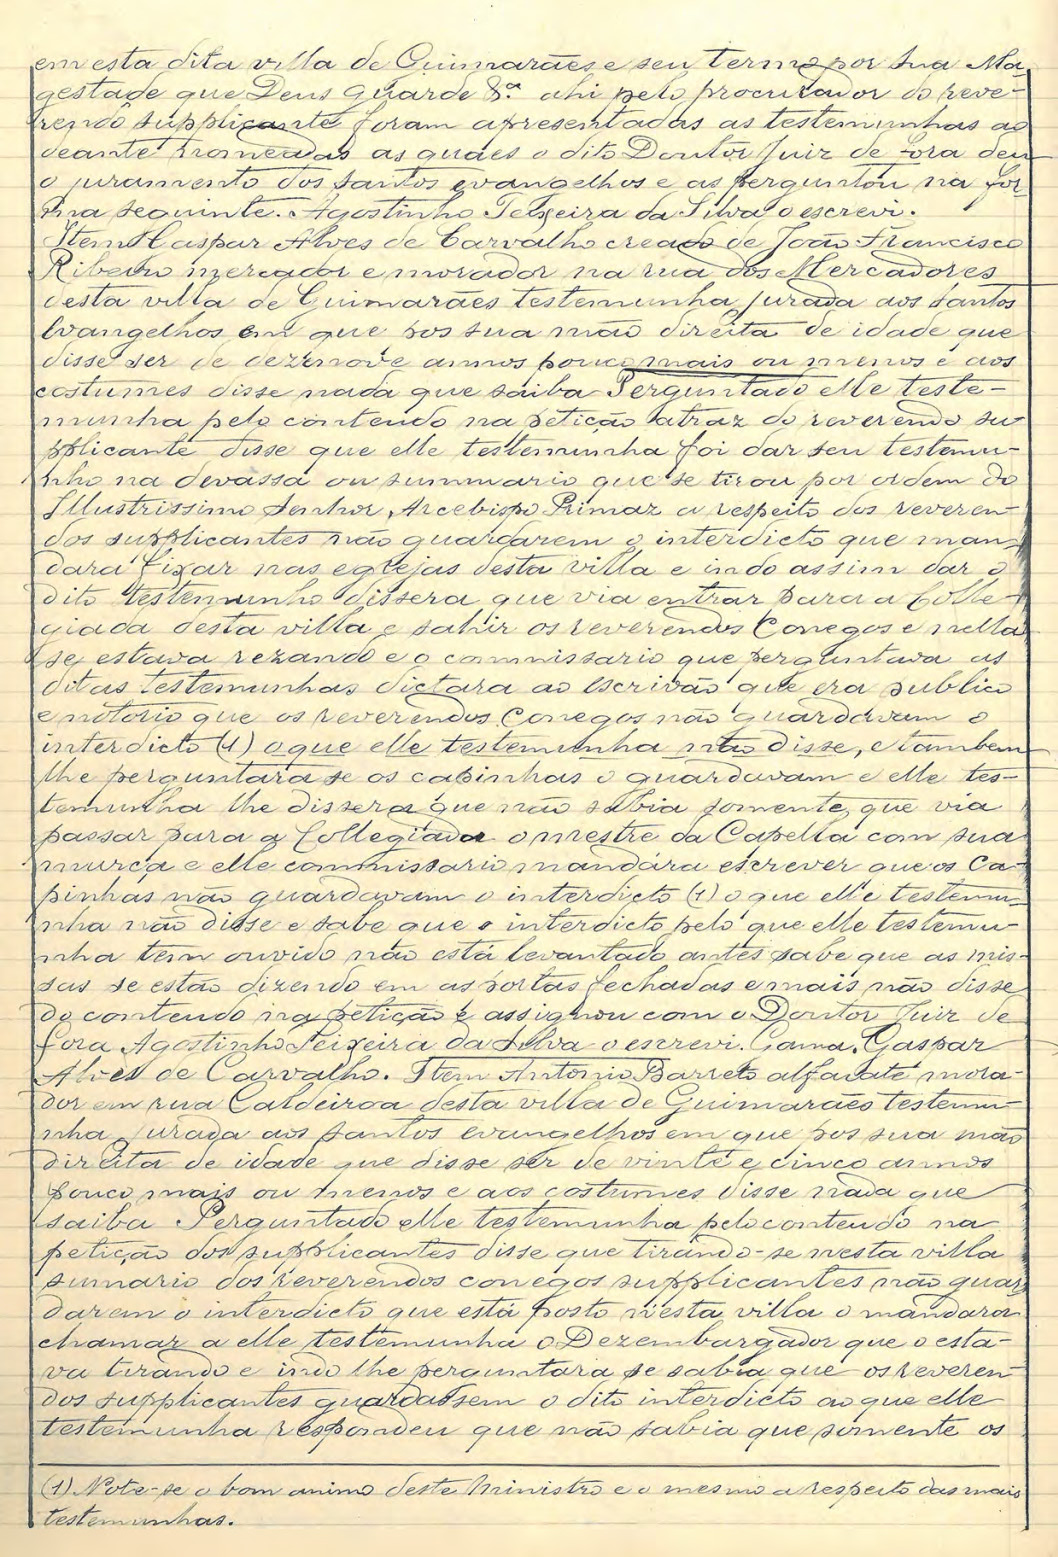 em esta dita villa de Guimarães e seu termo por Sua Ma-
gestade que Deus guarde &.ª ahi pelo procurador do reve-
rendo supplicante foram apresentadas as testemunhas ao
deante nomeadas as quaes o dito Doutor Juiz de fora deu
o juramento dos santos evangelhos e as perguntou na for-
ma seguinte. Agostinho Teixeira da Silva o escrevi.
Item Gaspar Alves de Carvalho creado de João Francisco
Ribeiro mercador e morador na rua dos Mercadores
desta villa de Guimarães testemunha jurada aos Santos
Evangelhos em que pos sua mão direita de idade que
disse ser de dezenove annos pouco mais ou menos e aos
costumes disse nada que saiba Perguntado elle teste-
munha pelo contendo na petição atraz do reverendo su-
pplicante disse que elle testemunha foi dar seu testemu-
nho na devassa ou summario que se tirou por ordem do
Illustrissimo Senhor Arcebispo Primaz a respeito dos reveren-
dos supplicantes não guardarem o interdicto que man-
dara fixar nas egrejas desta villa e indo assim dar o
dito testemunho dissera que via entrar para a Colle-
giada desta villa e sahir os reverendos Conegos e nella
se estava rezando e o commissario que perguntava as
ditas testemunhas dictara ao Escrivão que era publico
e notorio que os reverendos Conegos não guardavam o
interdicto (1) o que elle testemunha não disse, e tambem
lhe perguntara se os capinhas o guardavam e elle tes-
temunha lhe dissera que não sabia somente que via
passar para a Collegiada o mestre da Capella com sua
murça e elle commissario mandára escrever que os Ca-
pinhas não guardavam o interdicto (1) o que elle testemu-
nha não disse e sabe que o interdicto pelo que elle testemu-
nha tem ouvido não está levantado antes sabe que as mis-
sas se estão dizendo em as portas fechadas e mais não disse
do contendo na petição e assignou com o Doutor Juiz de
fora Agostinho Teixeira da Silva o escrevi. Gama. Gaspar
Alves de Carvalho. Item Antonio Barreto alfaiate mora-
dor em rua Caldeiroa desta villa de Guimarães testemu-
nha jurada aos santos evangelhos em que pos sua mão
direita de idade que disse ser de vinte e cinco annos
pouco mais ou menos e aos costumes disse nada que
saiba Perguntado elle testemunha pelo contendo na
petição dos supplicantes disse que tirando-se nesta villa
sumario dos reverendos conegos supplicantes não guar-
darem o interdicto que está posto n'esta villa o mandaron
chamar a elle testemunha o Dezembargador que o esta-
va tirando e indo lhe perguntara se sabia que os reveren-
dos supplicantes guardassem o dito interdicto ao que elle
testemunha respondeu que não sabia que somente os
(1) Note-se o bom animo deste Ministro e o mesmo a respeito das mais
testemunhas.